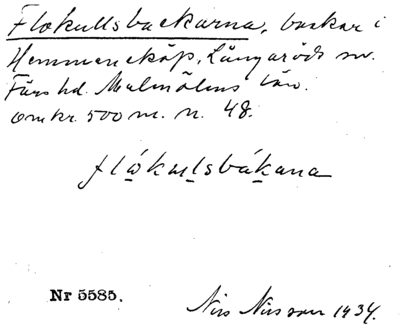 Flokullsbackarna, backar i
Hemmeneköp, Långaröds sn.
Färs hd. Malmöhus län.
Omkr. 500 m. n. 48.
flókulsbákana
Nr 5585.
Nils Nilsson 1934.